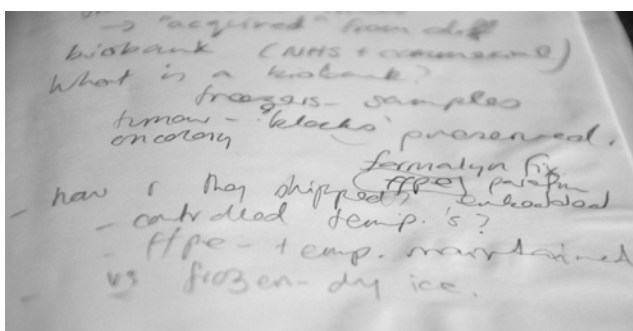 → "acquired" from diff
biobank (NHS + commercial)
What is a biobank?
freezers - samples
tumour - 'blocks' preserved.
oncology
formalyn fix
(ffpe) paraffin
- how r they shipped? embedded
- controlled temp.'s?
- ffpe - temp. maintained
vs frozen - dry ice.
-